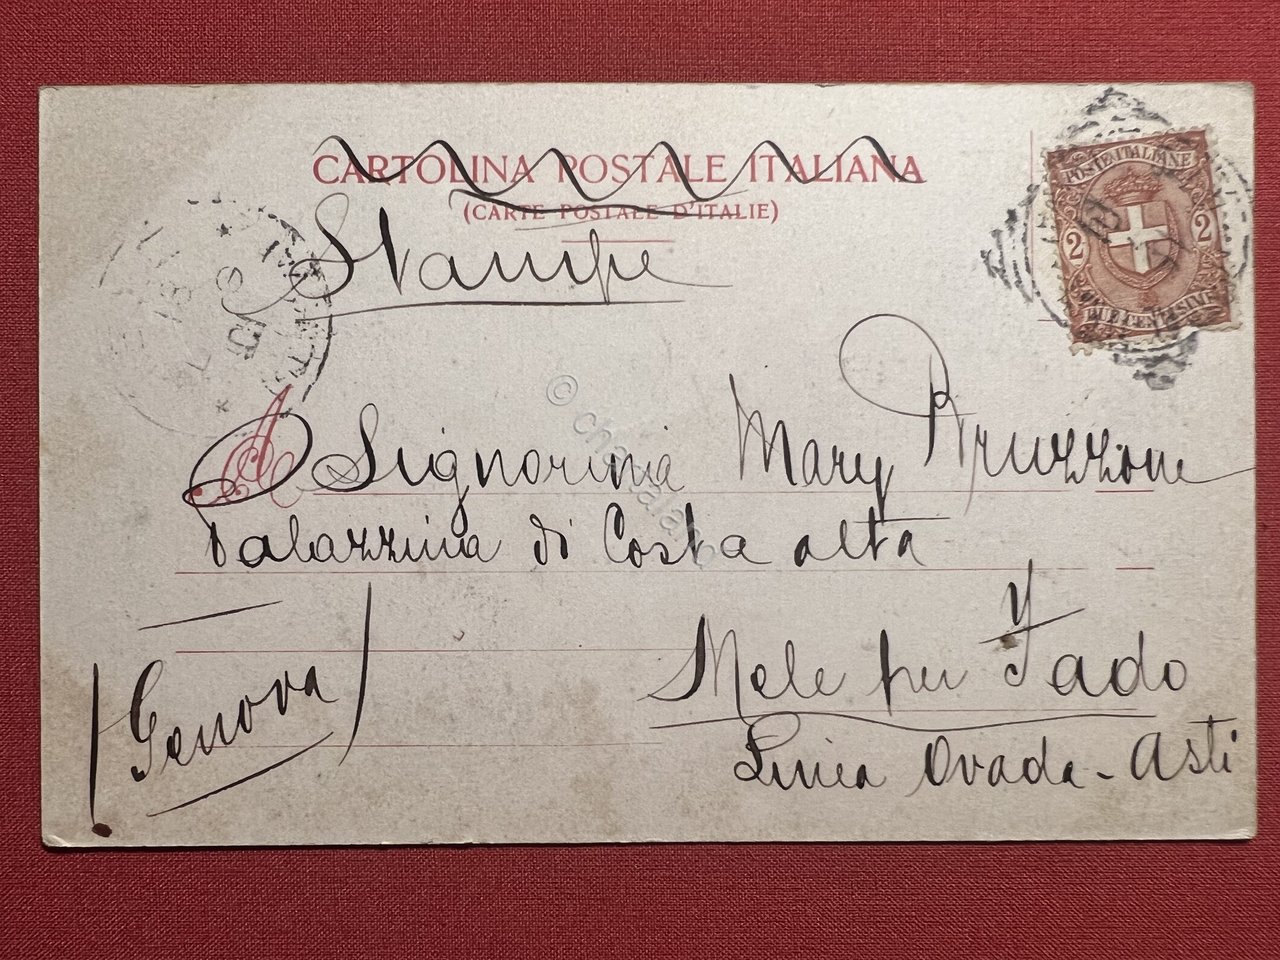 CARTOLINA POSTALE ITALIANA
(CARTE POSTALE D'ITALIE)
Stampe
POSTE ITALIANE
2 2
DUE CENTESIMI
A Signorina Mary Bruzzone
Palazzina di Costa alta
Mele per Fado
(Genova)
Linea Ovada - Asti
©